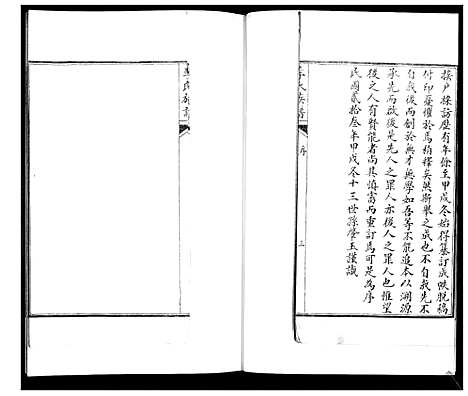 按戶採訪歷有年餘至甲戌冬始得纂訂成帙脫稿
付印憂懼於焉稍釋矣然斯舉之成也不自我先不
自我後而創於無才無學如吾等不能追本以溯源
承先而啟後是先人之罪人亦後人之罪人也惟望
後之人有賢能者尚其慎當而重訂焉可是為序
民國貳拾叁年甲戌冬十三世孫榮玉謹識
氏族譜
序
三
氏族譜